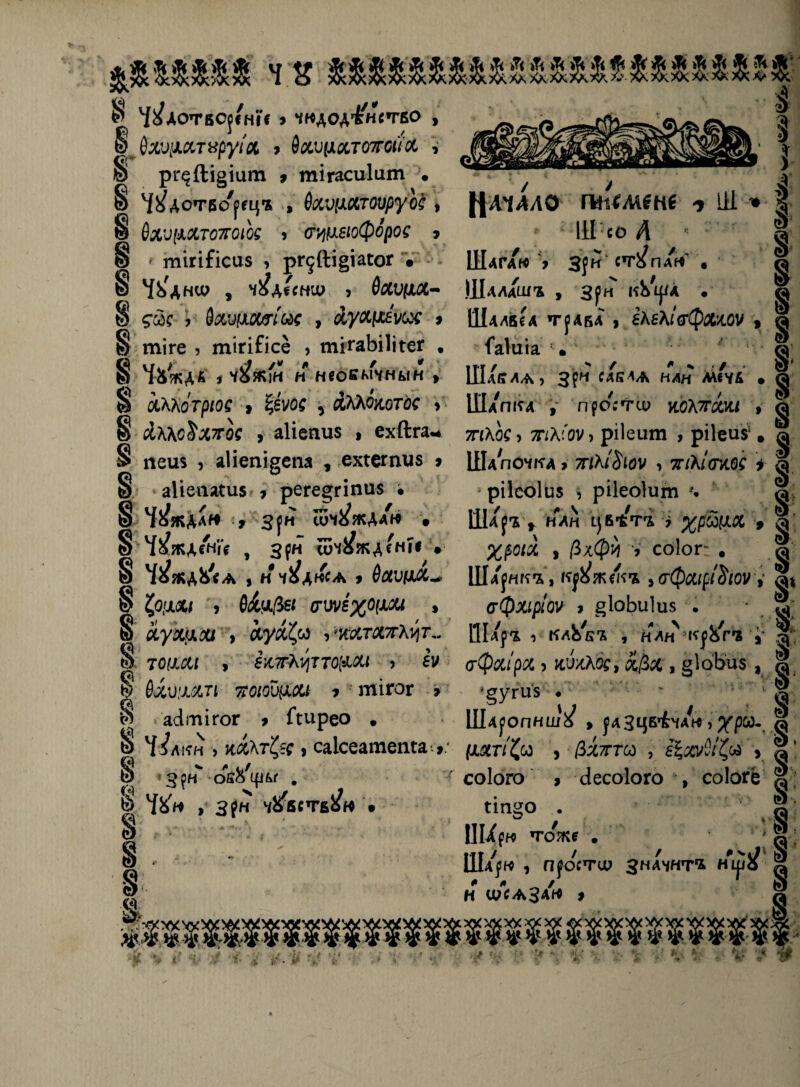 Чꙋ
Чꙋдотворе́нїе , чюдодѣ́нство ,
θαυματȣργία , θαυματοποιία ,
pręſtigium , miraculum .
Чꙋдотво́рецъ , θαυματουργὸς ,
θαυματοποιὸς , σημειοφόρος ,
mirificus , pręſtigiator .
Чꙋ́днѡ , чꙋде́снѡ , θαυμα-
ϛῶς , θαυμασίως , ἀγαμένως ,
mire , mirificè , mirabiliter .
Чꙋ́ждь , чꙋжі́й и҆ неѻбы́чный ,
ἀλλότριος , ξένος , ἀλλόκοτος ,
ἀλλοδαπὸς , alienus , exſtra-
neus , alienigena , externus ,
alienatus , peregrinus .
Чꙋжда́ю , зри̏ ѿчꙋжда́ю .
Чꙋжде́нїе , зри̏ ѿчꙋжде́нїе .
Чꙋждꙋ́сѧ , и҆ чꙋдю́сѧ , θαυμά-
ζομαι , θάμβει συνέχομαι ,
ἄγαμαι , ἀγάζω , καταπλήτ-
τομαι , ἐκπλήττομαι , ἐν
θαύματι ποιοῦμαι , miror ,
admiror , ſtupeo .
Чꙋлки̏ , κάλτζες , calceamenta ,
зри̏ ѻбꙋ́щы .
Чꙋ́ю , зри̏ чꙋ́вствꙋю .
НАЧАЛО ПИСМЕНЕ , Ш .
Ш со А
Шага́ю , зри̏ стꙋпа́ю .
Шала́шъ , зри̏ кꙋ́ща .
Шалве́а трава̀ , ἐλελίσφακον ,
ſaluia .
Ша́блѧ , зри̏ са́блѧ и҆лѝ ме́чь .
Ша́пка , про́стѡ κολπάκι ,
πῖλος , πιλίον , pileum , pileus .
Ша́почка , πιλίδιον , πιλίσκος ,
pileolus , pileolum .
Ша́ръ , и҆лѝ цвѣ́тъ , χρῶμα ,
χροιὰ , βαφὴ , color .
Ша́рикъ , крꙋже́къ , σφαιρίδιον ,
σφαιρίον , globulus .
Ша́ръ , клꙋ́бъ , и҆лѝ крꙋ́гъ ,
σφαίρα , κύκλος , ἄβα , globus ,
gyrus .
Шаропишꙋ̀ , разцвѣча́ю , χρω-
ματίζω , βάπτω , ἐξανθίζω ,
coloro , decoloro , colore
tingo .
Ша́рю то́же .
Ша́рю , про́стѡ значитъ и҆щꙋ̀
и҆ ѡ҆сѧза́ю ,